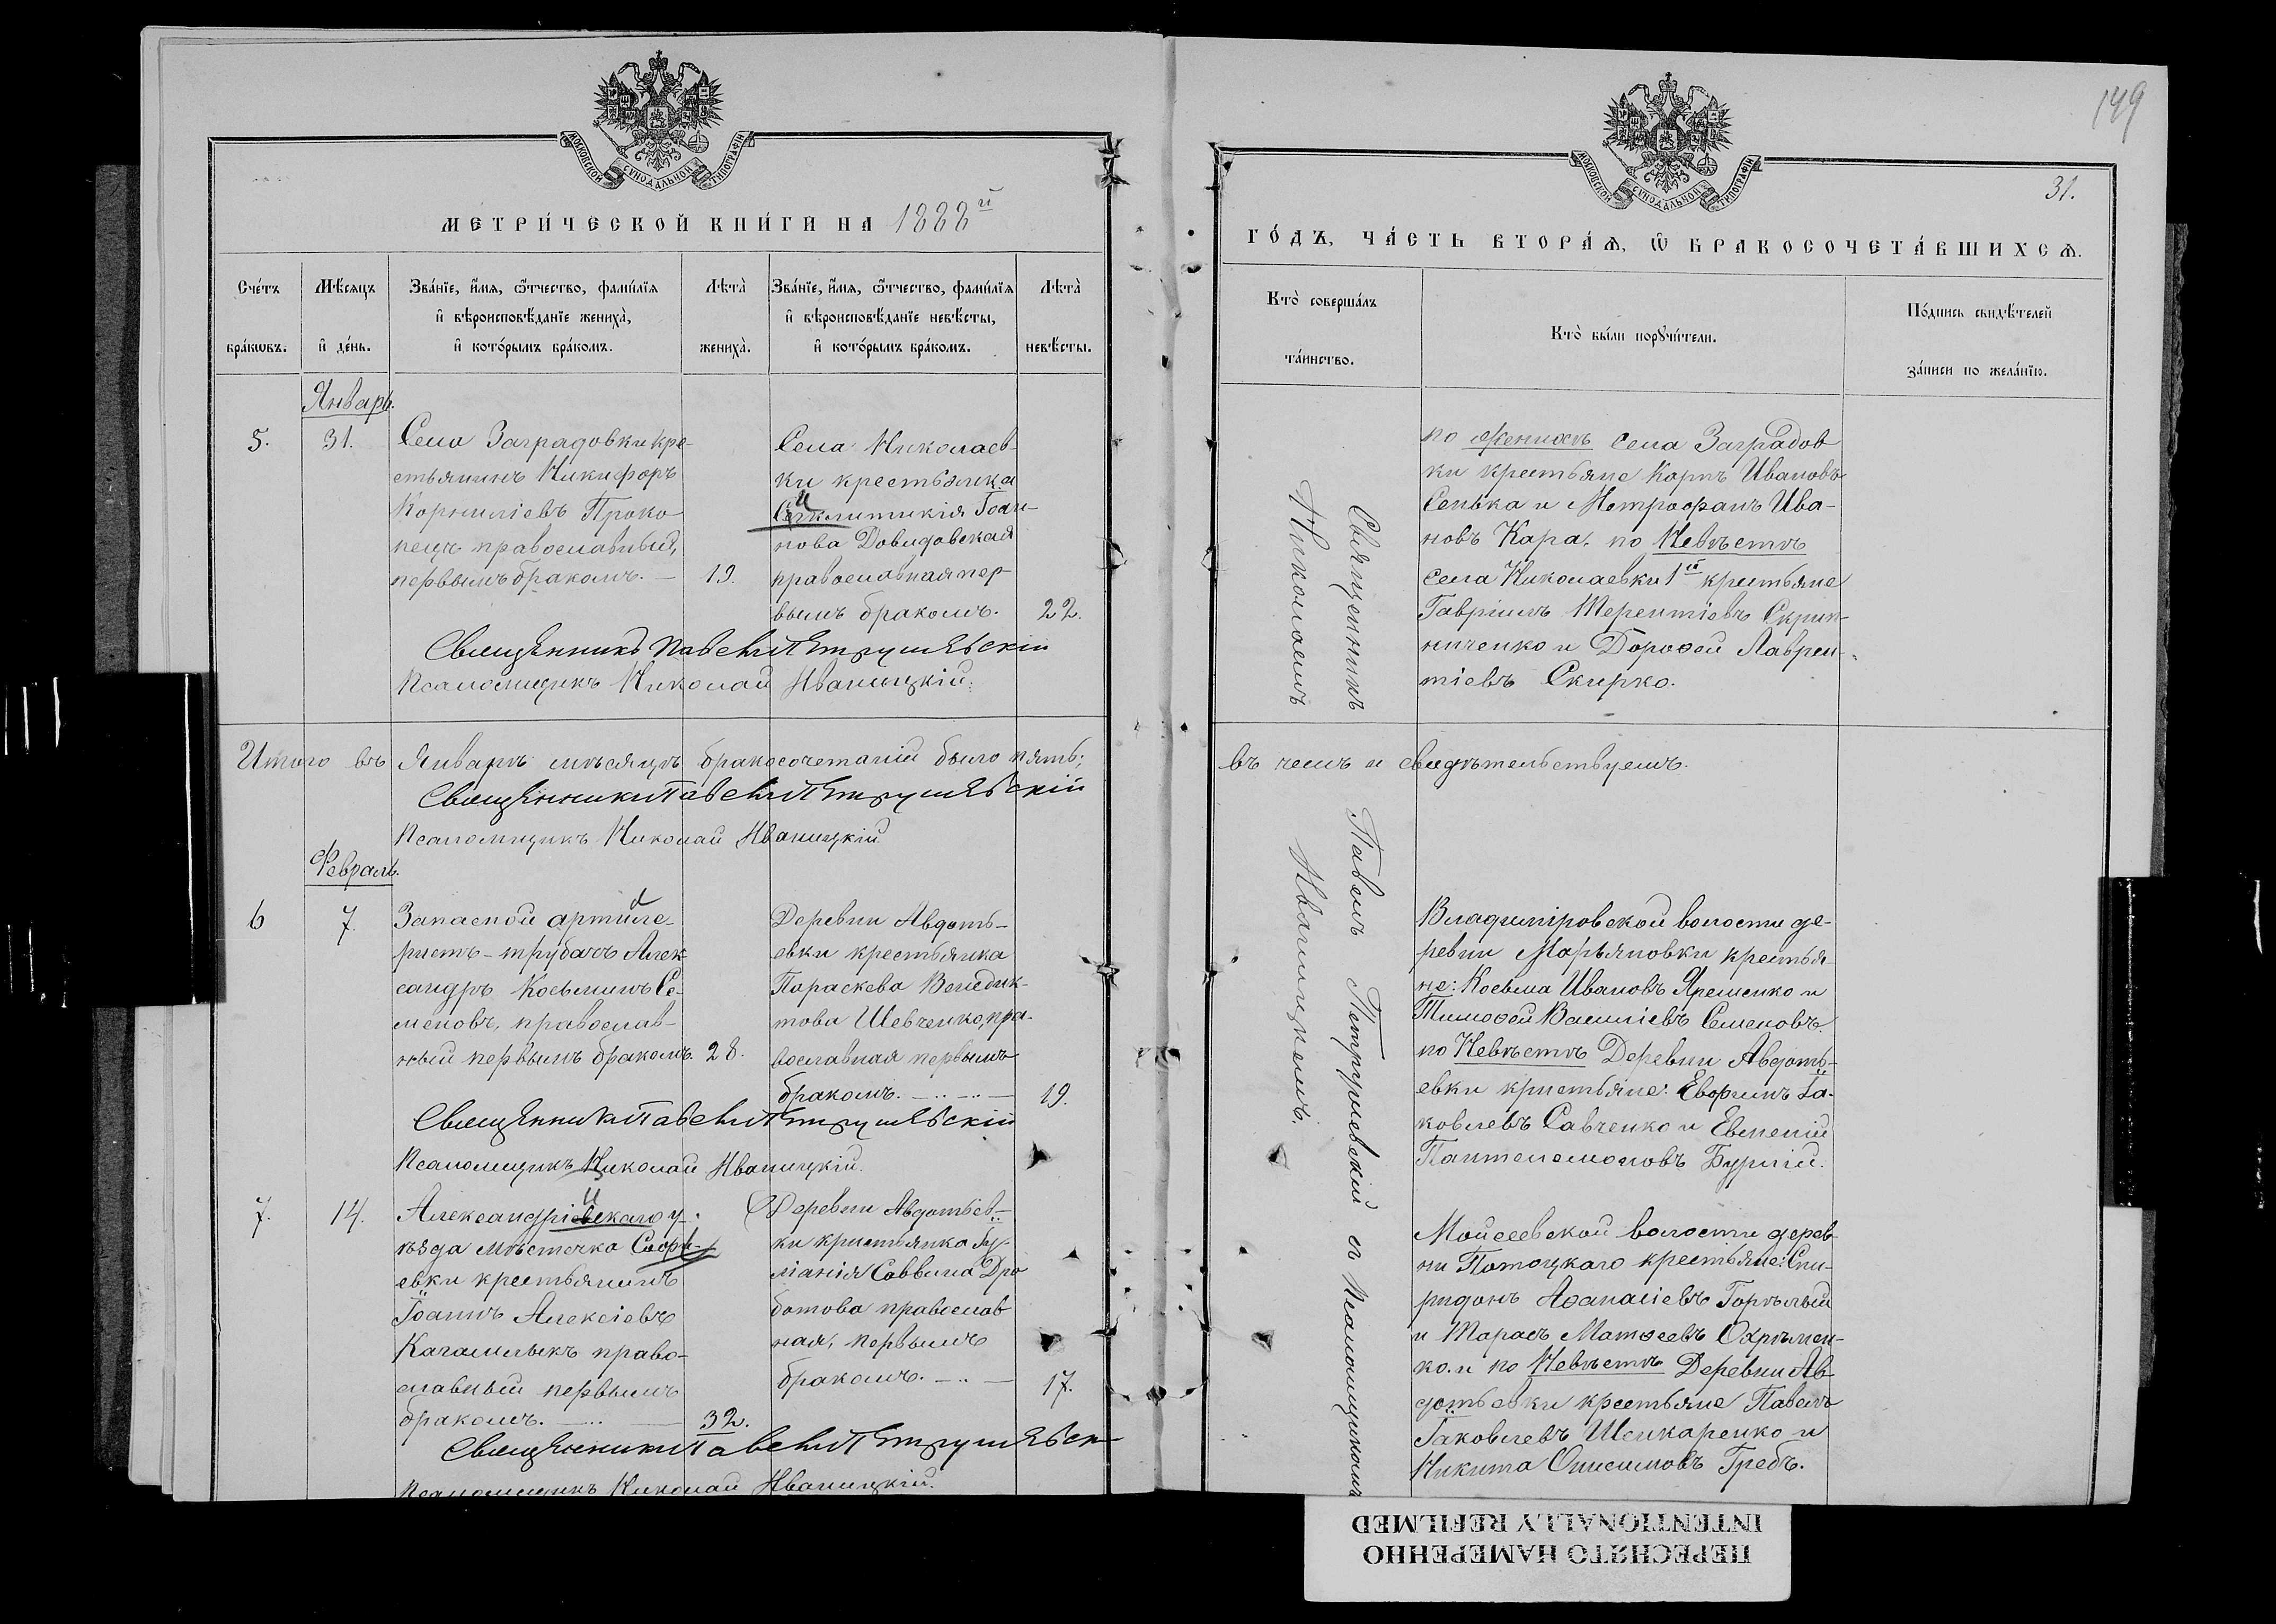 МОСКОВСКОЙ СѴНОДАЛЬНОЙ ТИПОГРАФІИ
МЕТРИ́ЧЕСКОЙ КНИ́ГИ НА 1888й
Сче́тъ бра́кωвъ.
Мѣ́сяцъ и҆ де́нь.
Зва́нїе, и҆́мя, ѻ҆́тчество, фами́лїя
и҆ вѣроисповѣ́данїе жениха̀,
и҆ кото́рымъ бра́комъ.
Лѣта̀ жениха̀.
Зва́нїе, и҆́мя, ѻ҆́тчество, фами́лїя
и҆ вѣроисповѣ́данїе невѣ́сты,
и҆ кото́рымъ бра́комъ.
Лѣта̀ невѣ́сты.
Январь.
5.
31.
Села Заградовки кре-
стьянинъ Никифоръ
Корниліевъ Проко
пецъ православный,
первымъ бракомъ. —
19.
Села Николаев-
ки крестьянка
Іоан-
нова Довидовская
православная пер-
вымъ бракомъ.
22.
Священникъ Павелъ Петрушевскій
Псаломщикъ Николай Иваницкій.
Итого въ Январѣ мѣсяцѣ бракосочетаній было пять;
Священникъ Павелъ Петрушевскій
Псаломщикъ Николай Иваницкій
Февраль.
6
7.
Запасной артиле-
ристъ-трубачъ Алек
сандръ Косьминъ Се-
меновъ, православ-
ный первымъ бракомъ.
28.
Деревни Авдоть-
евки крестьянка
Параскева Венедик-
това Шевченко, пра-
вославная первымъ
бракомъ. — .. — .. —
19.
Священникъ Павелъ Петрушевскій
Псаломщикъ Николай Иваницкій.
7.
14.
Александрійскаго у-
ѣзда мѣстечка Софі-
евки крестьянинъ
Іоаннъ Алексіевъ
Качалыкъ право-
славный первымъ
бракомъ. — .. —
32.
Деревни Авдотьев-
ки крестьянка Іу-
ліанія Саввина Дро
ботова православ
ная, первымъ
бракомъ. — .. —
17.
Священникъ Павелъ Петрушевск
Псаломщикъ Николай Иваницкій.
149
МОСКОВСКОЙ СѴНОДАЛЬНОЙ ТИПОГРАФІИ
31.
ГО́ДЪ, ЧА́СТЬ ВТОРА́Ѧ, Ѽ БРАКОСОЧЕТА́ВШИХСѦ.
Кто̀ соверша́лъ
та́инство.
Кто̀ бы́ли порꙋчи́тели.
По́дпись свидѣ́телей
за́писи по жела́нїю.
Священникъ Павелъ Петрушевскій съ Псаломщикомъ
Николаемъ Иваницкимъ.
по женихѣ села Заградов
ки крестьяне Карпъ Ивановъ
Сенька и Митрофанъ Ива-
новъ Кара. по Невѣстѣ
села Николаевки 1й крестьяне
Гавріилъ Терентіевъ
и Дорофей Лаврен-
тіевъ Скирко.
въ чемъ и свидѣтельствуемъ.
Владиміровской волости де-
ревни Марьяновки крестья-
не: Косьма Ивановъ Яременко и
Тимофей Василіевъ Семеновъ.
по Невѣстѣ Деревни Авдоть-
евки крестьяне: Евфимъ Іа-
ковлевъ Савченко и Евгеній
Пантелемоновъ Бурлій.
Мойсеевской волости дерев
ни Потоцкаго крестьяне: Спи-
ридонъ Аѳанасіевъ Горѣлый
и Тарасъ Матѳеевъ Охрѣмен-
ко. и по Невѣстѣ Деревни Ав
дотьевки крестьяне Павелъ
Іаковлевъ Шинкаренко и
Никита Онисимовъ Гребъ.
ПЕРЕСНЯТО НАМЕРЕННО
INTENTIONALLY REFILMED